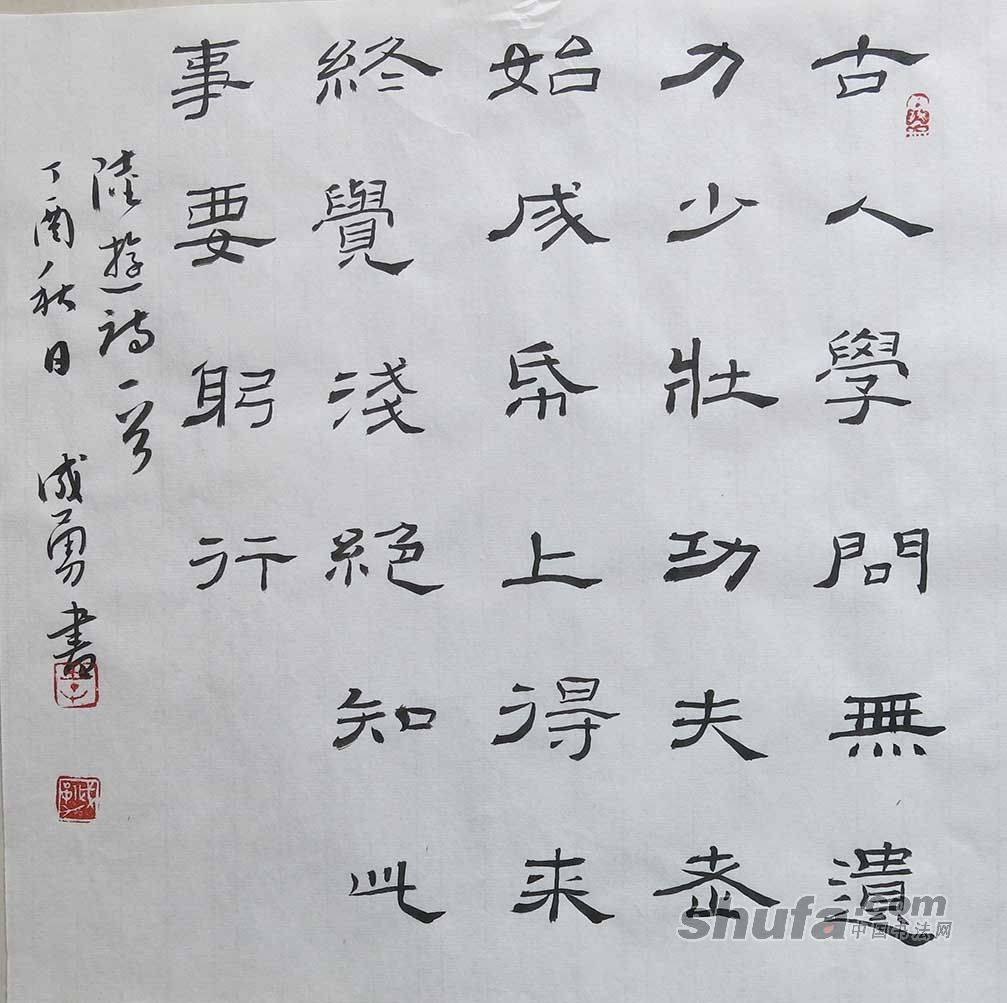 古人學問無遺
力少壯功夫老
始成帋上得来
終覺淺絕知此
事要躬行
陸游詩一首
丁酉秋日 成勇書
shufa.com
中国书法网